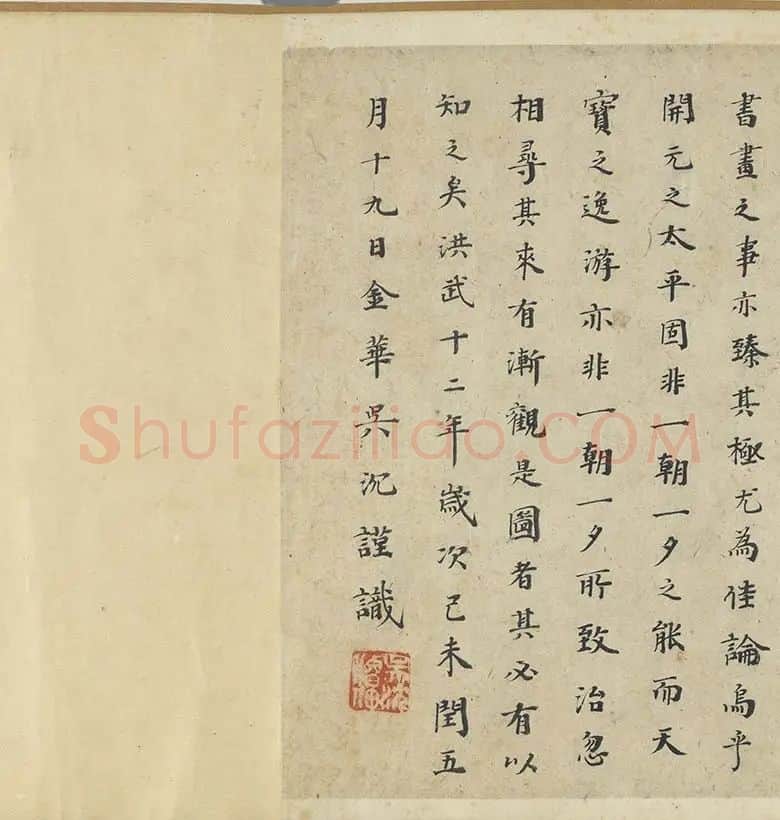 書畫之事亦臻其極尤為佳論烏乎
開元之太平固非一朝一夕之能而天
寶之逸游亦非一朝一夕所致治忽
相尋其來有漸觀是圖者其必有以
知之矣洪武十二年歲次己未閏五
月十九日金華吳沉謹識
Shufaziliao.COM